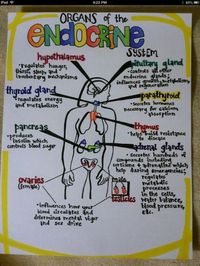 iPad
5:23 PM
ORGANS of the
ENDOCRINE
SYSTEM
hypothalamus
•Regulates hunger,
thirst, sleep, and
involuntary mechanisms
pituitary gland
•controls all other
endocrine glands;
influences growth, metabolism,
and regeneration
thyroid gland
•regulates energy
and metabolism
parathyroid
•Secretes hormones
necessary for calcium
absorption
pancreas
•produces
insulin which
controls blood sugar
thymus
•helps build resistance
to disease
adrenal glands
•Secretes hundreds of
compounds including
cortisone & adrenaline which
help during emergencies;
regulates
metabolic
processes
in the cells,
water balance,
blood pressure,
etc.
ovaries
(female)
male
testicles
•Influences how your
blood circulates and
determines mental vigor
and sex drive